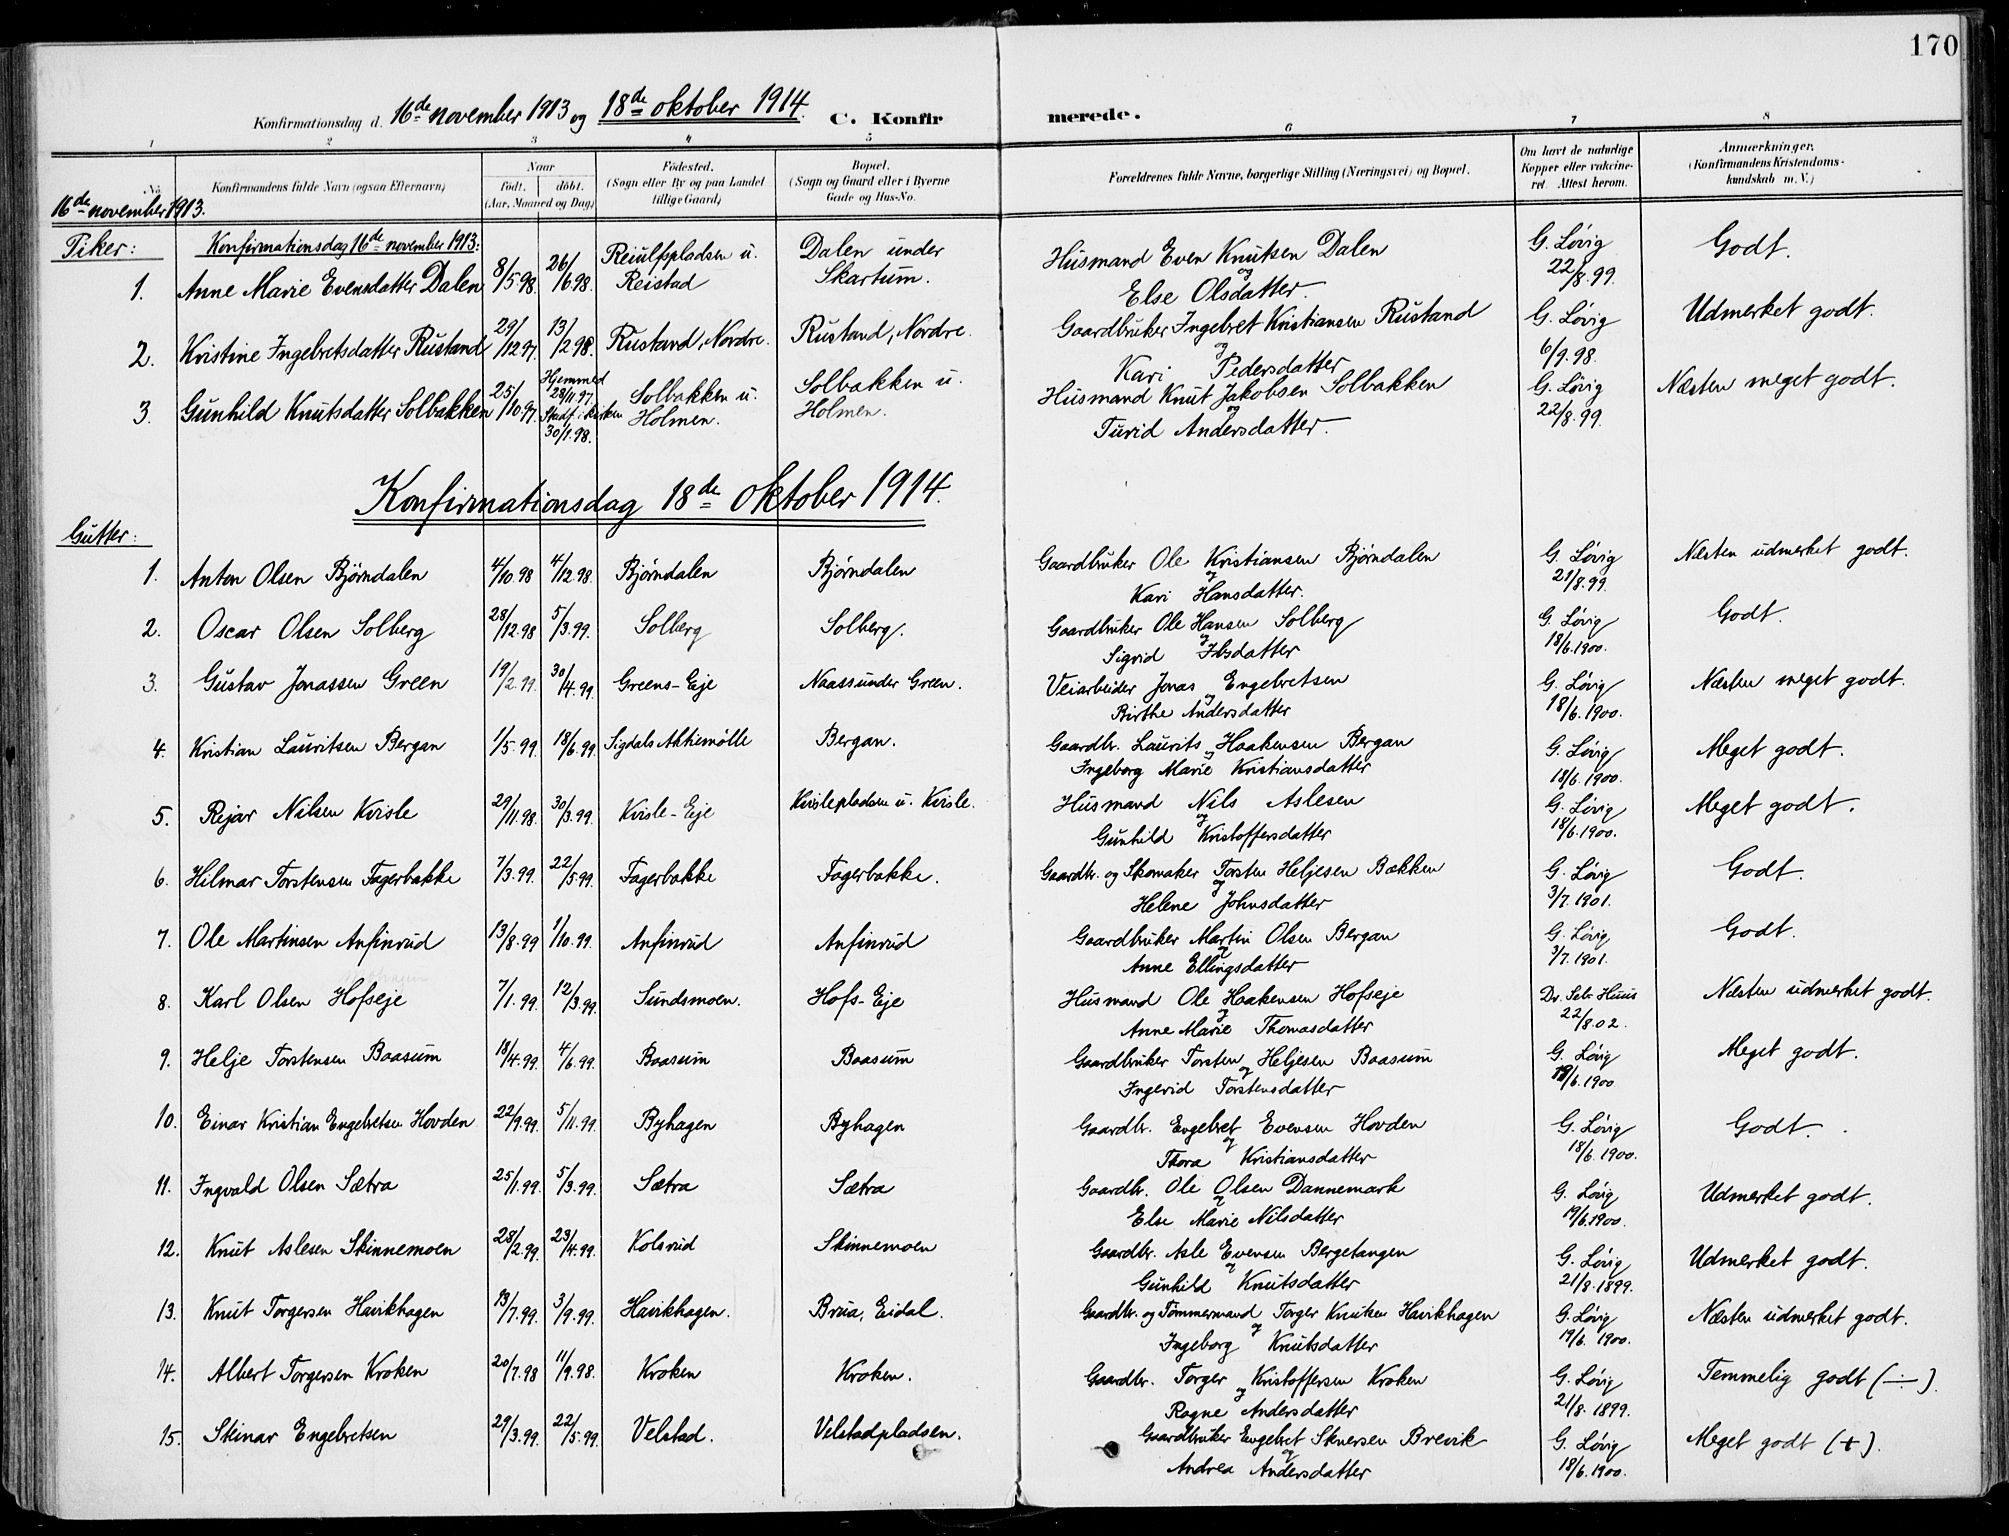 170
Konfirmationsdag d. 16de november 1913 og 18de oktober 1914. C. Konfirmerede.
1 2 3 4 5 6 7 8
No. Konfirmandens fulde Navn (ogsaa Efternavn) Naar født. døbt. (Aar, Maaned og Dag) Fødested. (Sogn eller By og paa Landet tillige Gaard) Bopæl. (Sogn og Gaard eller i Byerne Gade og Hus-No. Forældrenes fulde Navne, borgerlige Stilling (Næringsvei) og Bopæl. Om havt de naturlige Kopper eller vaccineret. Attest herom. Anmærkninger. (Konfirmandens Kristendomskundskab m. V.)
16de november 1913.
Piker: Konfirmationsdag 16de november 1913:
1. Anne Marie Evensdatter Dalen 8/5.98. 26/6 98. Reiulfspladsen u. Reistad Dalen under Skartum. Husmand Even Knutsen Dalen og Else Olsdatter. G. Løvig 22/8.99. Godt.
2. Kristine Ingebretsdatter Rustand 29/12 97. 13/2 98. Rustand, Nordre. Rustand, Nordre. Gaardbruker Ingebret Kristiansen Rustand og Kari Pedersdatter G. Løvig 6/9.98. Udmerket godt.
3. Gunhild Knutsdatter Solbakken 25/10.97. Hjemmed 28/11 97. Stadf. i kirken 30/1.98. Solbakken u. Holmen. Solbakken u. Holmen. Husmand Knut Jakobsen Solbakken og Turid Andersdatter. G. Løvig 22/8.99. Næsten meget godt.
Konfirmationsdag 18de oktober 1914.
Gutter:
1. Anton Olsen Bjørndalen 4/10 98 4/12 98. Bjørndalen Bjørndalen Gaardbruker Ole Kristiansen Bjørndalen og Kari Hansdatter. G. Løvig 21/8.99. Næsten udmerket godt.
2. Oscar Olsen Solberg 28/12.98 5/3.99. Solberg Solberg. Gaardbruker Ole Hansen Solberg og Sigrid Ibsdatter G. Løvig 18/6.1900. Godt.
3. Gustav Jonassen Green 19/2.99. 30/4.99. Greens-Eje Naass under Green. Veiarbeider Jonas Engebretsen og Birthe Andersdatter G. Løvig 18/6.1900. Næsten meget godt.
4. Kristian Lauritsen Bergan 1/5.99. 18/6.99. Sigdals Aktiemølle Bergan. Gaardbr. Laurits Haakensen Bergan og Ingeborg Marie Kristiansdatter G. Løvig 18/6.1900. Meget godt.
5. Rejar Nilsen Kvisle 29/11.98. 30/3.99. Kvisle-Eje Kvislepladsen u. Kvisle. Husmand Nils Aslesen og Gunhild Kristoffersdatter G. Løvig 18/6.1900. Meget godt.
6. Hilmar Torstensen Fagerbakke 7/3.99. 22/5.99. Fagerbakke Fagerbakke. Gaardbr. og Skomaker Torsten Heljesen Bakken og Helene Johnsdatter G. Løvig 3/7.1901. Godt.
7. Ole Martinsen Anfinrud 13/8.99 1/10.99. Anfinrud Anfinrud Gaardbruker Martin Olsen Bergan og Anne Ellingsdatter G. Løvig 3/7.1901. Godt.
8. Karl Olsen Hofseje 7/1.99. 12/3.99. Sundsmoen. Hofs-Eje Husmand Ole Haakensen Hofseje og Anne Marie Thomasdatter Dr. Seb. Huus 22/8.02. Næsten udmerket godt.
9. Helje Torstensen Baasum 18/4.99. 4/6.99. Baasum Baasum Gaardbruker Torsten Heljesen Baasum og Ingerid Torstensdatter G. Løvig 19/6.1900 Meget godt.
10. Einar Kristian Engebretsen Hovden 22/9.99. 5/11.99. Byhagen Byhagen Gaardbr. Engebret Evensen Hovden og Thora Kristiansdatter G. Løvig 18/6.1900. Godt.
11. Ingvald Olsen Sætra 25/1.99. 5/3.99. Sætra Sætra Gaardbr. Ole Olsen Dannemark og Else Marie Nilsdatter G. Løvig 19/6.1900. Udmerket godt.
12. Knut Aslesen Skinnemoen 28/2.99. 23/4.99. Kolsrud Skinnemoen Gaardbr. Asle Evensen Bergetangen og Gunhild Knutsdatter G. Løvig 21/8.1899. Udmerket godt.
13. Knut Torgersen Havikhagen 13/7.99. 3/9.99. Havikhagen. Brua, Eidal. Gaardbr. og Tømmermand Torger Knutsen Havikhagen og Ingeborg Knutsdatter G. Løvig 19/6.1900. Næsten udmerket godt.
14. Albert Torgersen Kroken 20/7.98 11/9.98. Kroken Kroken. Gaardbr. Torger Kristoffersen Kroken og Ragne Andersdatter G. Løvig 21/8.1899. Temmelig godt (÷).
15. Steinar Engebretsen 29/3.99. 22/5.99. Velstad. Velstadpladsen. Gaardbruker Engebret Syversen Brevik og Andrea Andersdatter G. Løvig 18/6.1900. Meget godt (+).